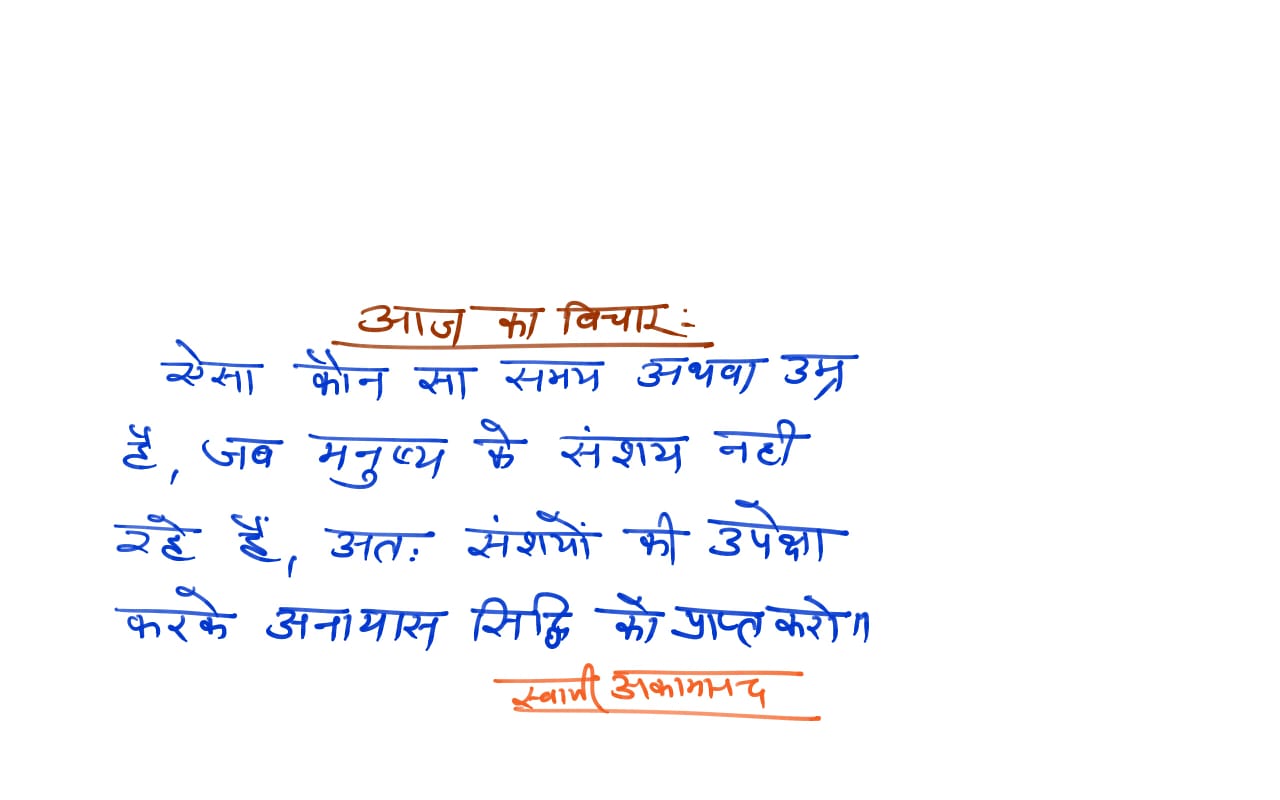 आज का विचार :-
ऐसा कौन सा समय अथवा उम्र
है, जब मनुष्य के संशय नही
रहे हैं, अतः संशयों की उपेक्षा
करके अनायास सिद्धि को प्राप्त करो॥
स्वामी अकामानन्द